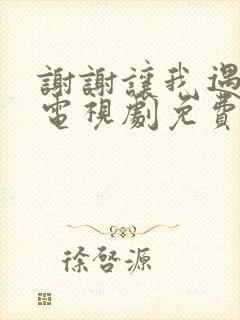 謝謝讓我遇
電視劇免費
徐啓源